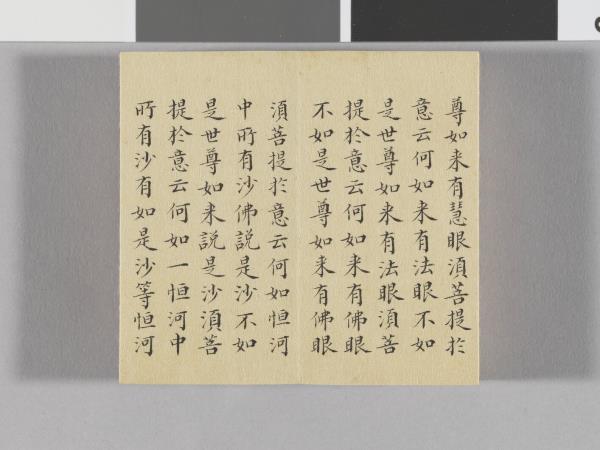 尊如来有慧眼湏菩提於
意云何如来有法眼不如
是世尊如来有法眼湏菩
提於意云何如来有佛眼
不如是世尊如来有佛眼
湏菩提於意云何如恒河
中所有沙佛説是沙不如
是世尊如来説是沙湏菩
提於意云何如一恒河中
所有沙有如是沙等恒河